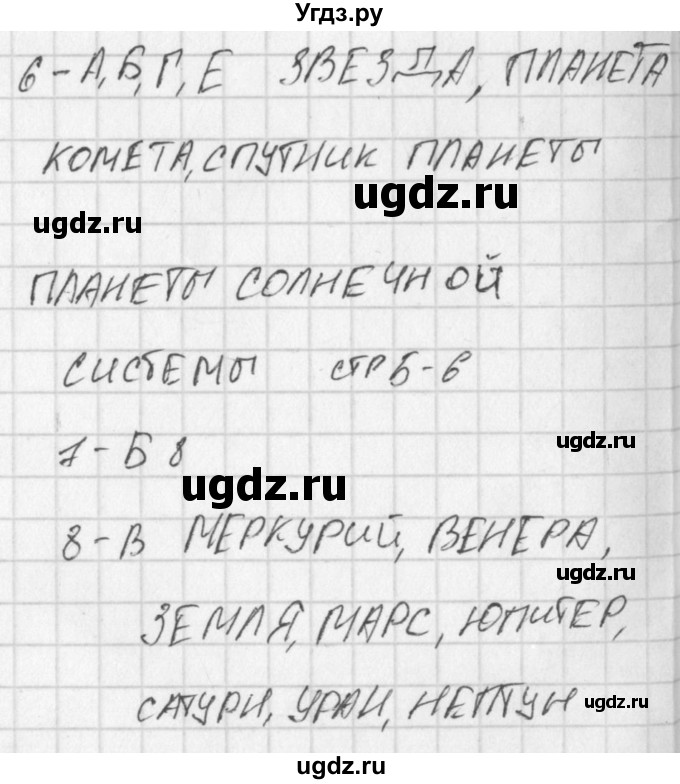 Угдз.ру
6 - А, Б, Г, Е ЗВЕЗДА, ПЛАНЕТА
КОМЕТА, СПУТНИК ПЛАНЕТЫ
ugdz.ru
ugdz.ru
ПЛАНЕТЫ СОЛНЕЧНОЙ
СИСТЕМЫ СТР 5-6
7 - Б 8
ugdz.ru
ugdz.ru
8 - В МЕРКУРИЙ, ВЕНЕРА,
ugdz.ru
ЗЕМЛЯ, МАРС, ЮПИТЕР,
САТУРН, УРАН, НЕПТУН
ugdz.ru
ugdz.ru